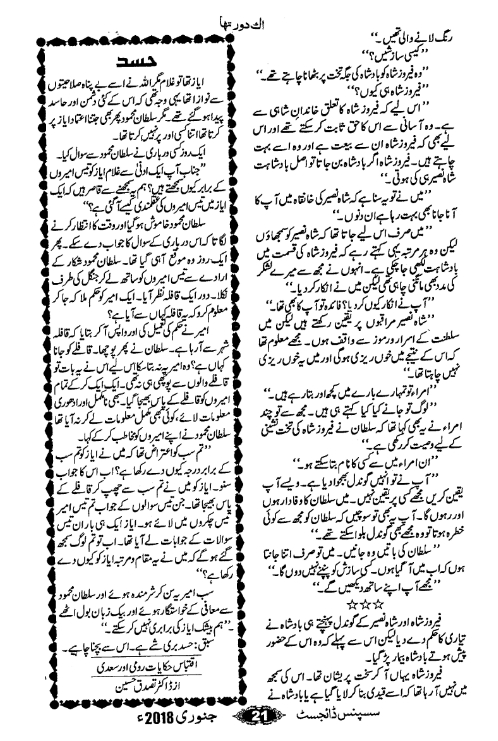 اک دور تھا
رنگ لانے والی تھیں۔‘‘
’’کیسی سازشیں؟‘‘
’’وہ فیروز شاہ کو بادشاہ کی جگہ تخت پر بٹھانا چاہتے تھے۔‘‘
’’فیروز شاہ ہی کیوں؟‘‘
’’اس لیے کہ فیروز شاہ کا تعلق خاندانِ شاہی سے
ہے۔ وہ آسانی سے اس کا حق ثابت کر سکتے تھے اور اس
لیے بھی کہ فیروز شاہ ان سے بیعت ہے اور وہ اسے بہت
چاہتے ہیں۔ فیروز شاہ اگر بادشاہ بن جاتا تو اصل بادشاہت
شاہ نصیر ہی کی ہوتی۔‘‘
’’میں نے تو یہ سنا ہے کہ شاہ نصیر کی خانقاہ میں آپ کا
آنا جانا بھی بہت رہا ہے ان دنوں۔‘‘
’’میں صرف اس لیے جاتا تھا کہ شاہ نصیر کو سمجھاؤں
لیکن وہ ہر مرتبہ یہی کہتے رہے کہ فیروز شاہ کی قسمت میں
بادشاہت لکھی جا چکی ہے۔ انہوں نے مجھ سے میرے لشکر
کی مدد بھی مانگنی چاہی تھی لیکن میں نے انکار کر دیا۔‘‘
’’آپ نے انکار کیوں کر دیا؟ فائدہ تو آپ کا بھی تھا۔‘‘
’’شاہ نصیر مراقبوں پر یقین رکھتے ہیں لیکن میں
سلطنت کے اسرار و رموز سے واقف ہوں۔ مجھے معلوم تھا
کہ اس کے نتیجے میں خوں ریزی ہوگی اور میں یہ خوں ریزی
نہیں چاہتا تھا۔‘‘
’’امراء تو تمہارے بارے میں کچھ اور بتا رہے ہیں۔‘‘
’’لوگ تو جانے کیا کیا کہتے ہیں۔ مجھ سے تو چند
امراء نے یہ بھی کہا تھا کہ سلطان نے فیروز شاہ کی تخت نشینی
کے لیے وصیت کر رکھی ہے۔‘‘
’’ان امراء میں سے کسی کا نام بتا سکتے ہو۔‘‘
’’آپ نے تو انہیں گوندل بھجوا دیا ہے۔ ویسے آپ
یقین کریں مجھے کسی پر یقین نہیں۔ میں سلطان کا وفادار ہوں
اور رہوں گا۔ آپ یہ بھی تو سوچیں کہ سلطان کو مجھ سے کوئی
خطرہ ہوتا تو وہ مجھے بھی گوندل بلوا سکتے تھے۔‘‘
’’سلطان کی باتیں وہ جانیں۔ میں تو صرف اتنا جانتا
ہوں کہ اب میں آ گیا ہوں۔ کسی سازش کو پنپنے نہیں دوں گا۔‘‘
’’مجھے آپ اپنے ساتھ دیکھیں گے۔‘‘
☆☆☆
فیروز شاہ اور شاہ نصیر کے گوندل پہنچتے ہی بادشاہ نے
تیاری کا حکم دے دیا لیکن اس سے پہلے کہ وہ اس کے حضور
پیش ہوتے بادشاہ بیمار پڑ گیا۔
فیروز شاہ یہاں آ کر سخت پریشان تھا۔ اس کی سمجھ
میں نہیں آ رہا تھا کہ اسے قیدی بنا کر لایا گیا ہے یا بادشاہ نے
حسد
ایاز تھا تو غلام مگر اللہ نے اسے بے پناہ صلاحیتوں
سے نوازا تھا، یہی وجہ تھی کہ اس کے کئی دشمن اور حاسد
پیدا ہو گئے تھے۔ مگر سلطان محمود پھر بھی جتنا اعتماد ایاز پر
کرتا تھا اتنا کسی اور پر نہیں کرتا تھا۔
ایک روز کسی درباری نے سلطان محمود سے سوال کیا۔
’’جناب آپ ایک ادنیٰ سے غلام ایاز کو تیس امیروں
کے برابر کیوں سمجھتے ہیں؟ ہم یہ سمجھنے سے قاصر ہیں کہ ایک
ایاز میں تیس امیروں کی عقلمندی کیسے آ گئی ہے؟‘‘
سلطان محمود خاموش ہو گیا اور وقت کا انتظار کرنے
لگا تا کہ اس درباری کے سوال کا جواب دے سکے۔ پھر
ایک روز وہ موقع آ ہی گیا تھا۔ سلطان محمود شکار کے
ارادے سے تیس امیروں کو ساتھ لے کر جنگل کی طرف
نکلا۔ دور ایک قافلہ نظر آیا۔ ایک امیر کو حکم ملا کہ جا کر
معلوم کرو کہ یہ قافلہ کہاں سے آیا ہے؟
امیر نے حکم کی تعمیل کی اور واپس آ کر بتایا کہ قافلہ
شہر سے آ رہا ہے۔ سلطان نے پھر پوچھا۔ قافلے کو جانا
کہاں ہے؟ وہ امیر یہ نہ بتا سکا اس لیے اس نے یہ بات تو
قافلے والوں سے پوچھی ہی نہ تھی۔ ایک ایک کر کے تمام
امیروں کو قافلے کے پاس بھیجا گیا۔ سبھی نامکمل اور ادھوری
معلومات لائے، کوئی بھی مکمل معلومات لے کر نہ آیا تھا
سلطان محمود نے اپنے امیروں کو مخاطب کر کے کہا۔
’’تم سب کو اعتراض تھا کہ میں نے ایاز کو تم سب
کے برابر درجہ کیوں دے رکھا ہے؟ اب اس کا جواب
سنو۔ ایاز کو میں نے تم سب سے چھپ کر قافلے کے
پاس بھیجا تھا۔ جن تیس سوالوں کے جوابات تم تیس امیر
تیس چکروں میں لائے ہو۔ ایاز ایک ہی بار ان تیس
سوالات کے جوابات لے آیا تھا۔ اب تو تم لوگ سمجھ
گئے ہو گے کہ میں نے یہ مقام و مرتبہ ایاز کو کیوں دے
رکھا ہے؟‘‘
سب امیر یہ سن کر شرمندہ ہوئے اور سلطان محمود
سے معافی کے خواستگار ہوئے اور بیک زبان بول اٹھے
۔’’ہم بیشک ایاز کی برابری نہیں کر سکتے۔‘‘
سبق: حسد بری شے ہے۔ اس سے بچنا چاہیے۔
اقتباس حکایات رومی اور سعدی
از ڈاکٹر تصدق حسین
سسپنس ڈائجسٹ 21 جنوری 2018ء